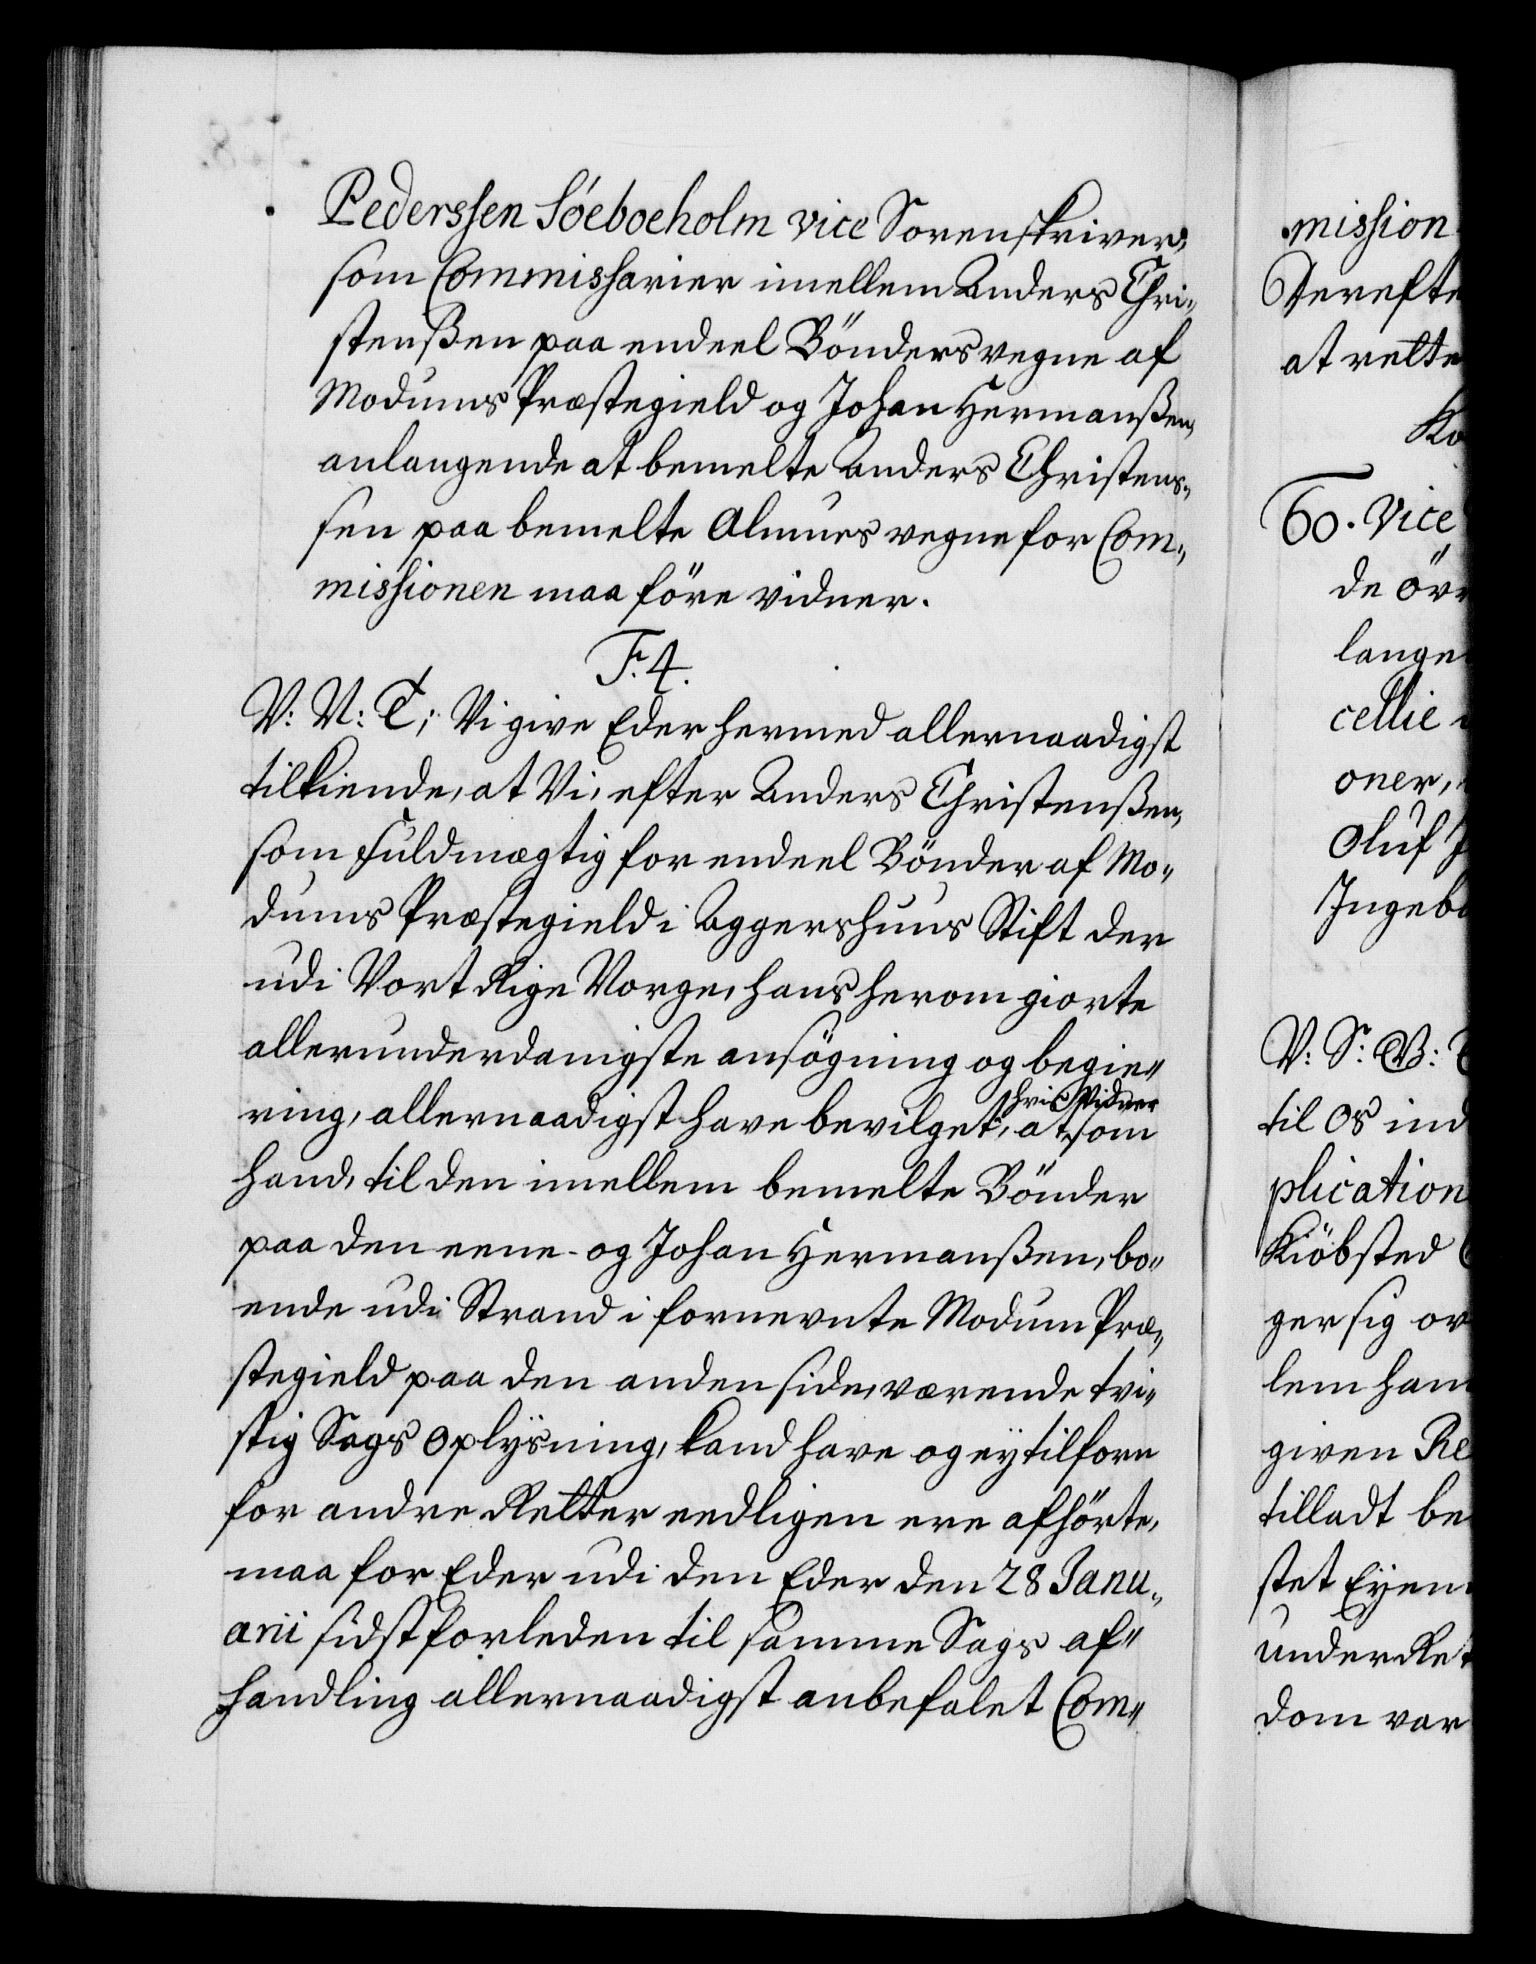 Pederssen Söeboeholm vice Sorenskriver,
som Commissarier imellem Anders Chri„
stenßen paa endeel Bönders vegne af
Modums Præstegield og Johan Hermanßen,
anlangende at bemelte Anders Christens„
sen paa bemelte Almues vegne for Com„
missionen maa före vidner.
F. 4.
V: U: T; Vi give Eder hermed allernaadigst
tilkiende, at Vi, efter Anders Christenßen,
som fuldmægtig for endeel Bönder af Mo„
dums Præstegield i Aggershuus Stift der
udi Vort Rige Norge, hans herom giorte
allerunderdanigste ansögning og begie„
ring, allernaadigst have bevilget, at hvis Vidner som
hand, til den imellem bemelte Bönder
paa den eene- og Johan Hermanßen, bo„
ende udi Strand i fornevnte Modum Præ„
stegield paa den anden side, værende tvi„
stig Sags Oplysning, kand have og ey tilforn
for andre Retter eedligen ere afhörte,
maa for Eder udi den Eder den 28 Janu„
arii sidstforleden til samme Sags af„
handling allernaadigst anbefalet Com„
mission
Derefte
at rette
Ko
60. Vice
de övr
lange
cellie
oner,
Oluf J
Ingeb
V: S: B: T
til Os ind
plication
Kiöbsted
ger sig ov
lem ham
given Re
tilladt be
stet Eyen
underRet
dom var